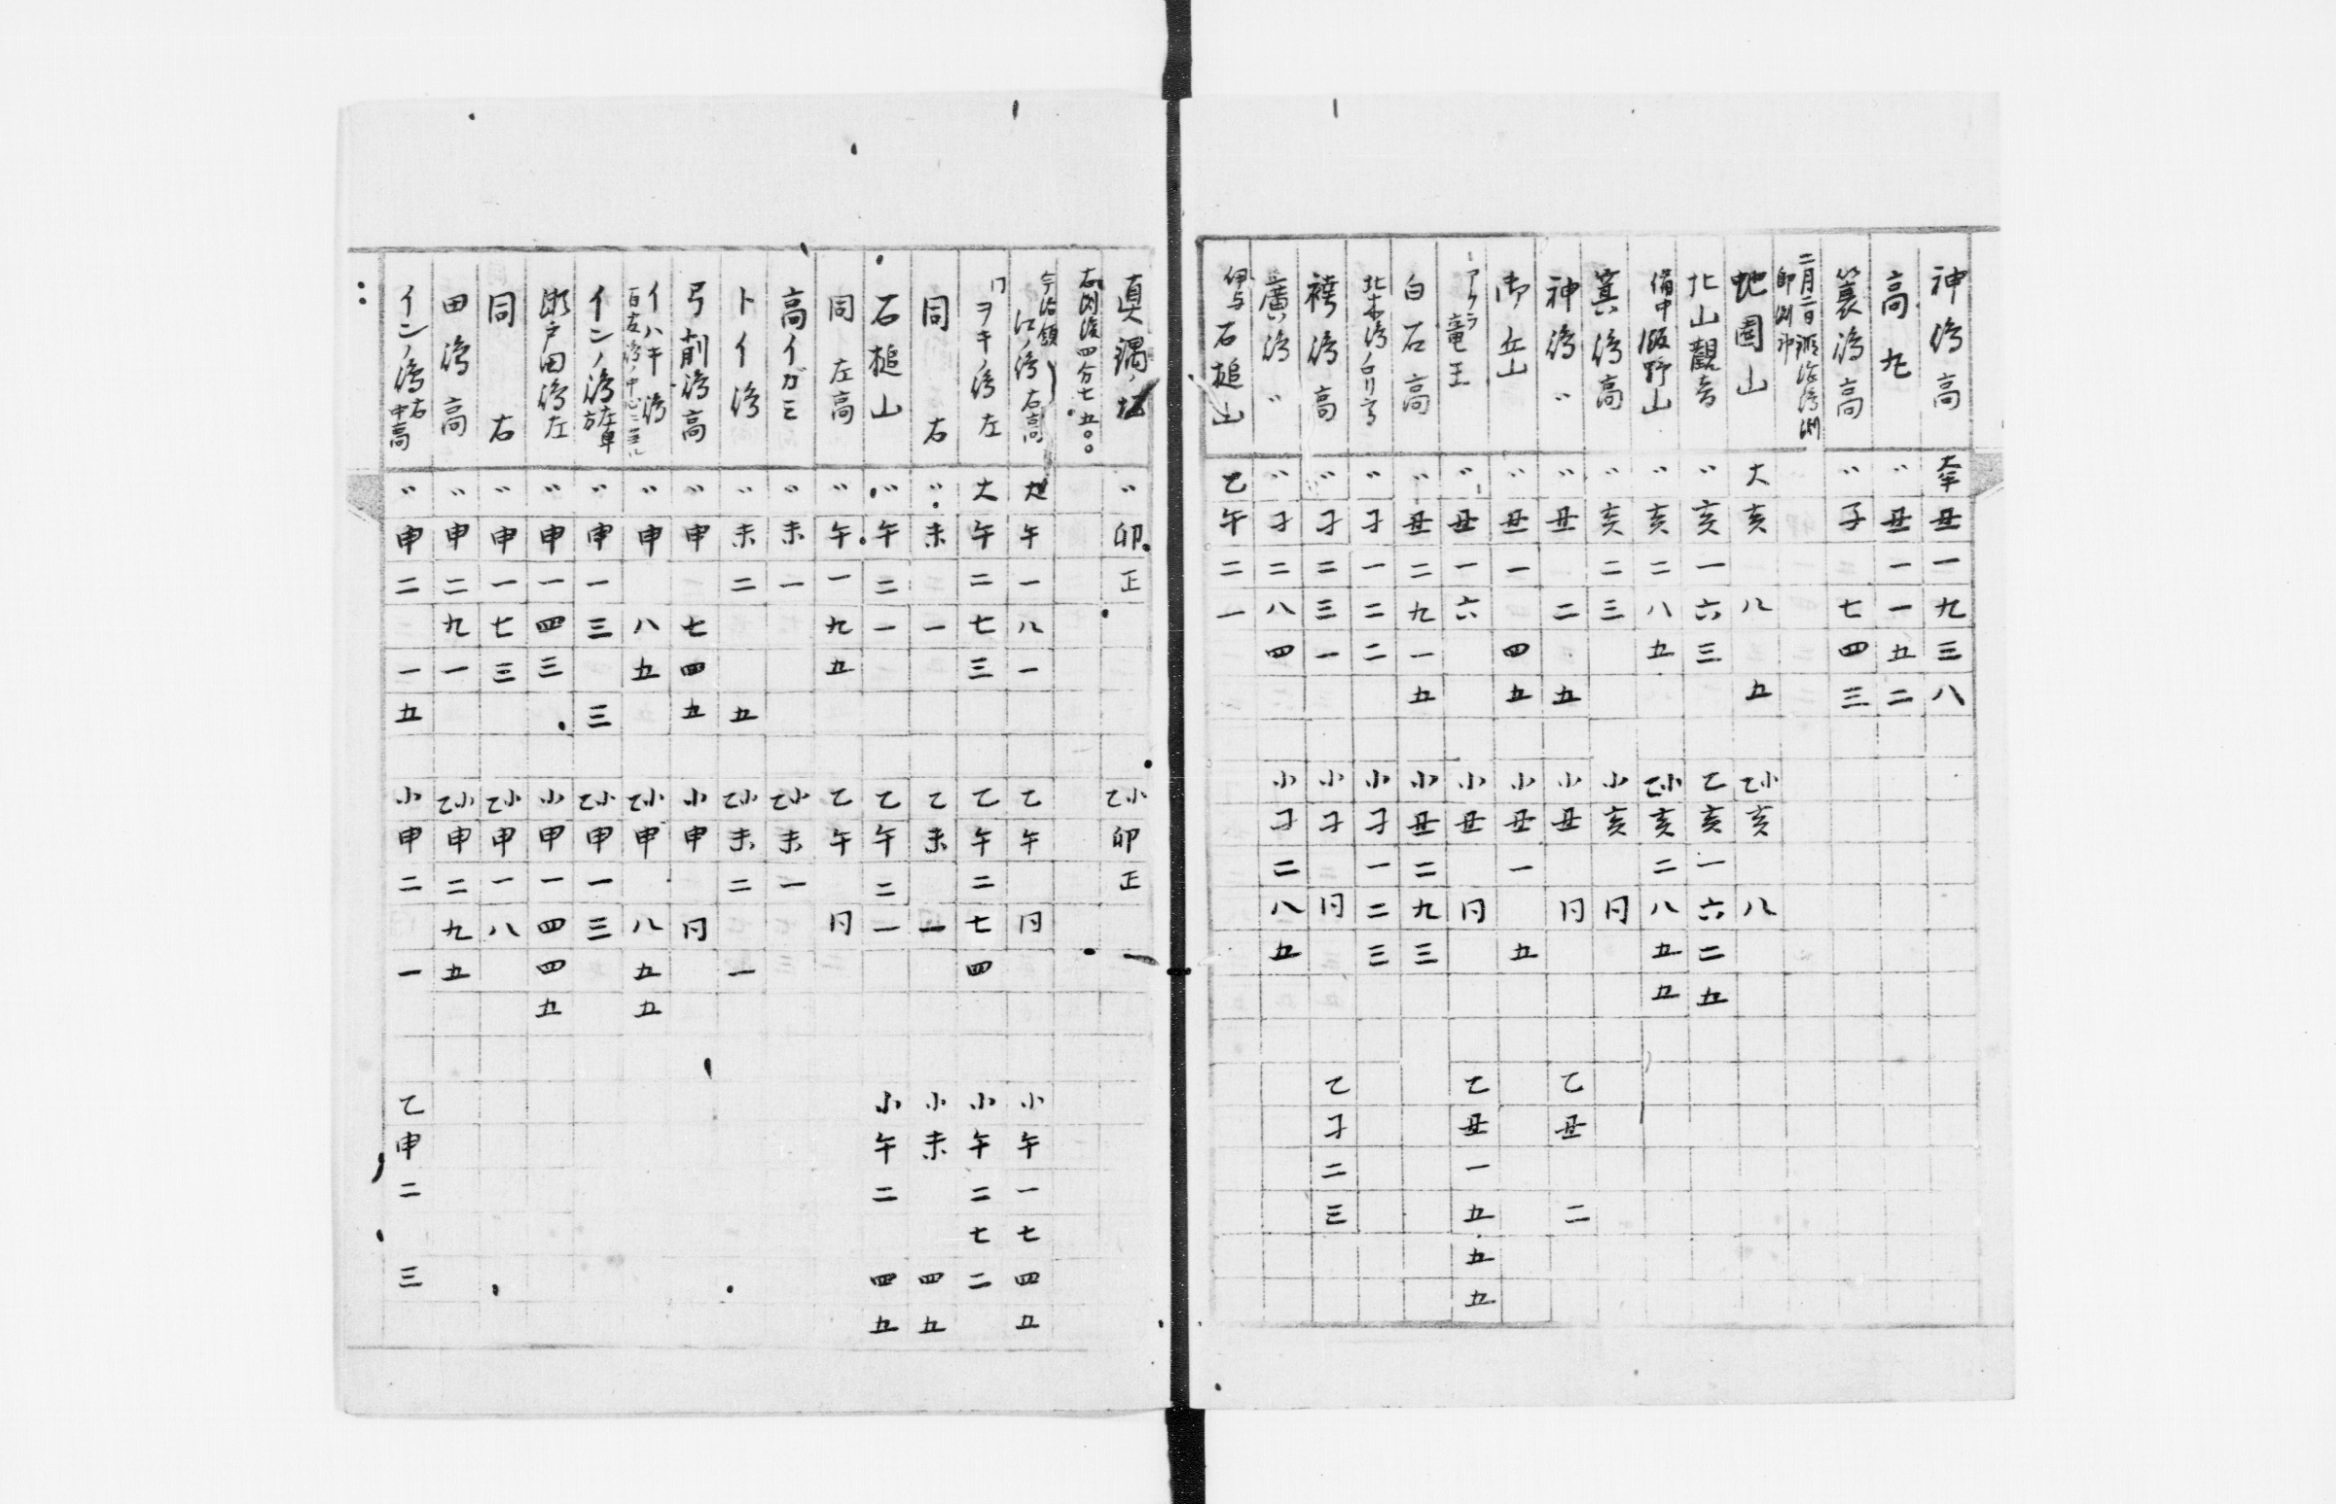 神濤高 大卒 丑 一 九 三 八
高丸 〃 丑 一 一 五 二
簑濤高 〃 子 七 四 三
二月二日
蛇圓山 大 亥 八 五 乙小 亥 八
北山觀音 〃 亥 一 六 三 乙 亥 一 六 二 五
備中飯野山 〃 亥 二 八 五 乙小 亥 二 八 五 五
箕濤高 〃 亥 二 三 小 亥 同
神濤〃 〃 丑 二 五 小 丑 同 乙 丑 二
御岳山 〃 丑 一 四 五 小 丑 一 五
アクラ竜王 〃 丑 一 六 小 丑 同 乙 丑 一 五 五 五
白石高 〃 丑 二 九 一 五 小 丑 二 九 三
北木濤 〃 子 一 二 二 小 子 一 二 三
袴濤高 〃 子 二 三 一 小 子 同 乙 子 二 三
廣濤〃 〃 子 二 八 四 小 子 二 八 五
伊与石槌山 乙 午 二 一
真鍋 〃 卯 正 乙小 卯 正
右測後四分七五〇〇
今治領 江ノ濤右高 大 午 一 八 一 乙 午 同 小 午 一 七 四 五
同 ヲキノ濤左 大 午 二 七 三 乙 午 二 七 四 小 午 二 七 二
同右 〃 未 一 乙 未 一 小 未 四 五
石槌山 〃 午 二 一 乙 午 二 一 小 午 二 四 五
同左高 〃 午 一 九 五 乙 午 同
高イガミ 〃 未 一 乙小 未 一
トイ濤 〃 未 二 五 乙小 未 二 一
弓削濤高 〃 申 七 四 五 小 申 同
イハキ濤 〃 申 八 五 乙小 申 八 五 五
インノ濤左 〃 申 一 三 三 乙小 申 一 三
瀬戸田濤左 〃 申 一 四 三 小 申 一 四 四 五
同右 〃 申 一 七 三 乙小 申 一 八
田濤高 〃 申 二 九 一 乙小 申 二 九 五
インノ濤右中高 〃 申 二 一 五 小 申 二 一 乙 申 二 三